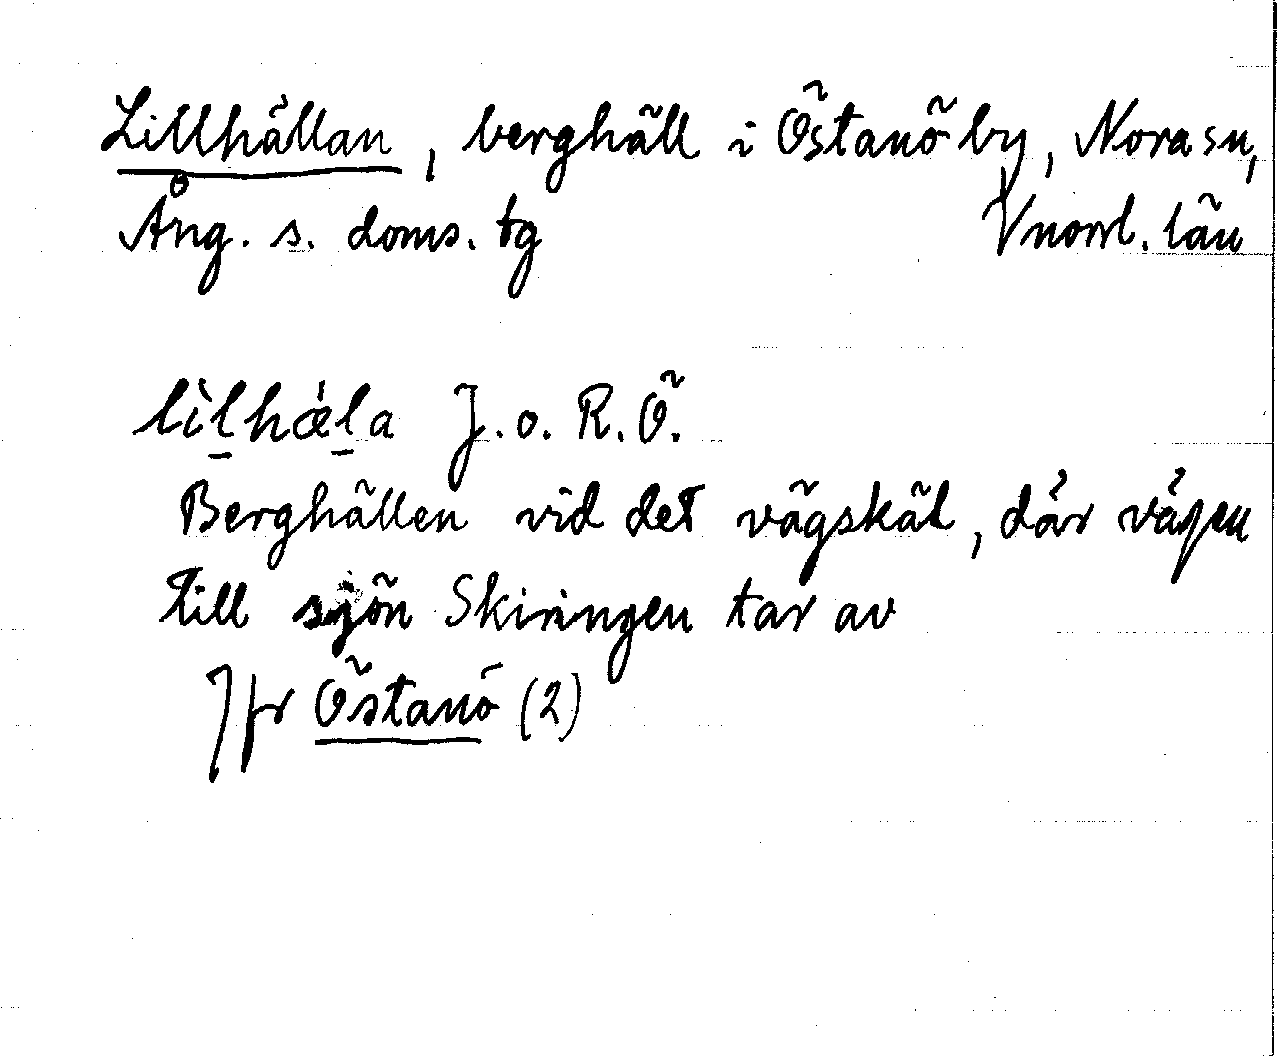 Lillhällan, berghäll i Östanö by, Nora sn,
Ång. s. doms. tg Vnorrl. län
lìl̠hǽl̠a J. o. R. Ö.
Berghällen vid det vägskäl, där vägen
till sjön Skiringen tar av
Jfr Östanö (2)